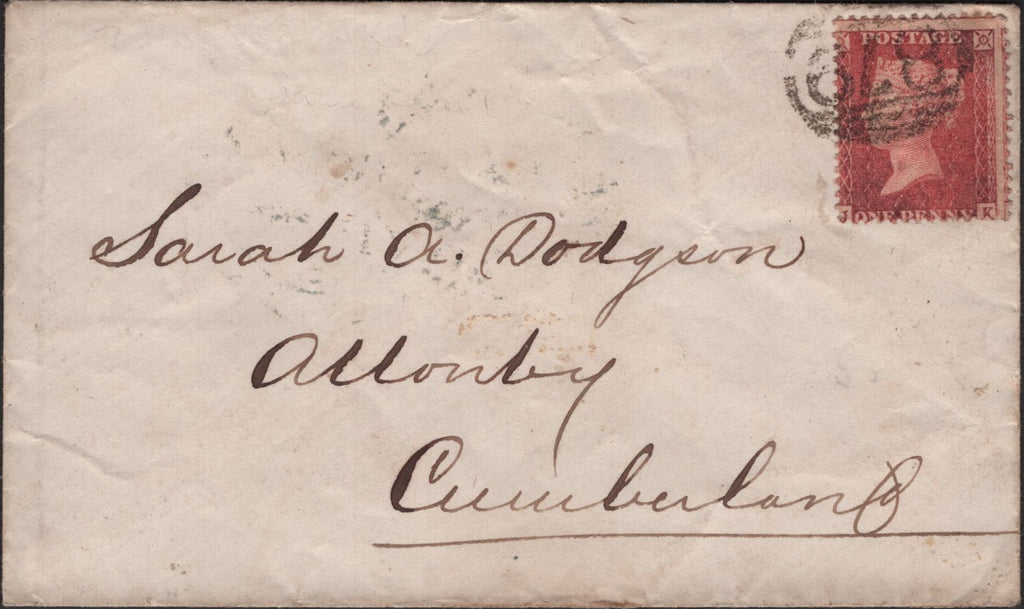 POSTAGE
878
J ONE PENNY K
Sarah A. Dodgson
Allonby
Cumberland